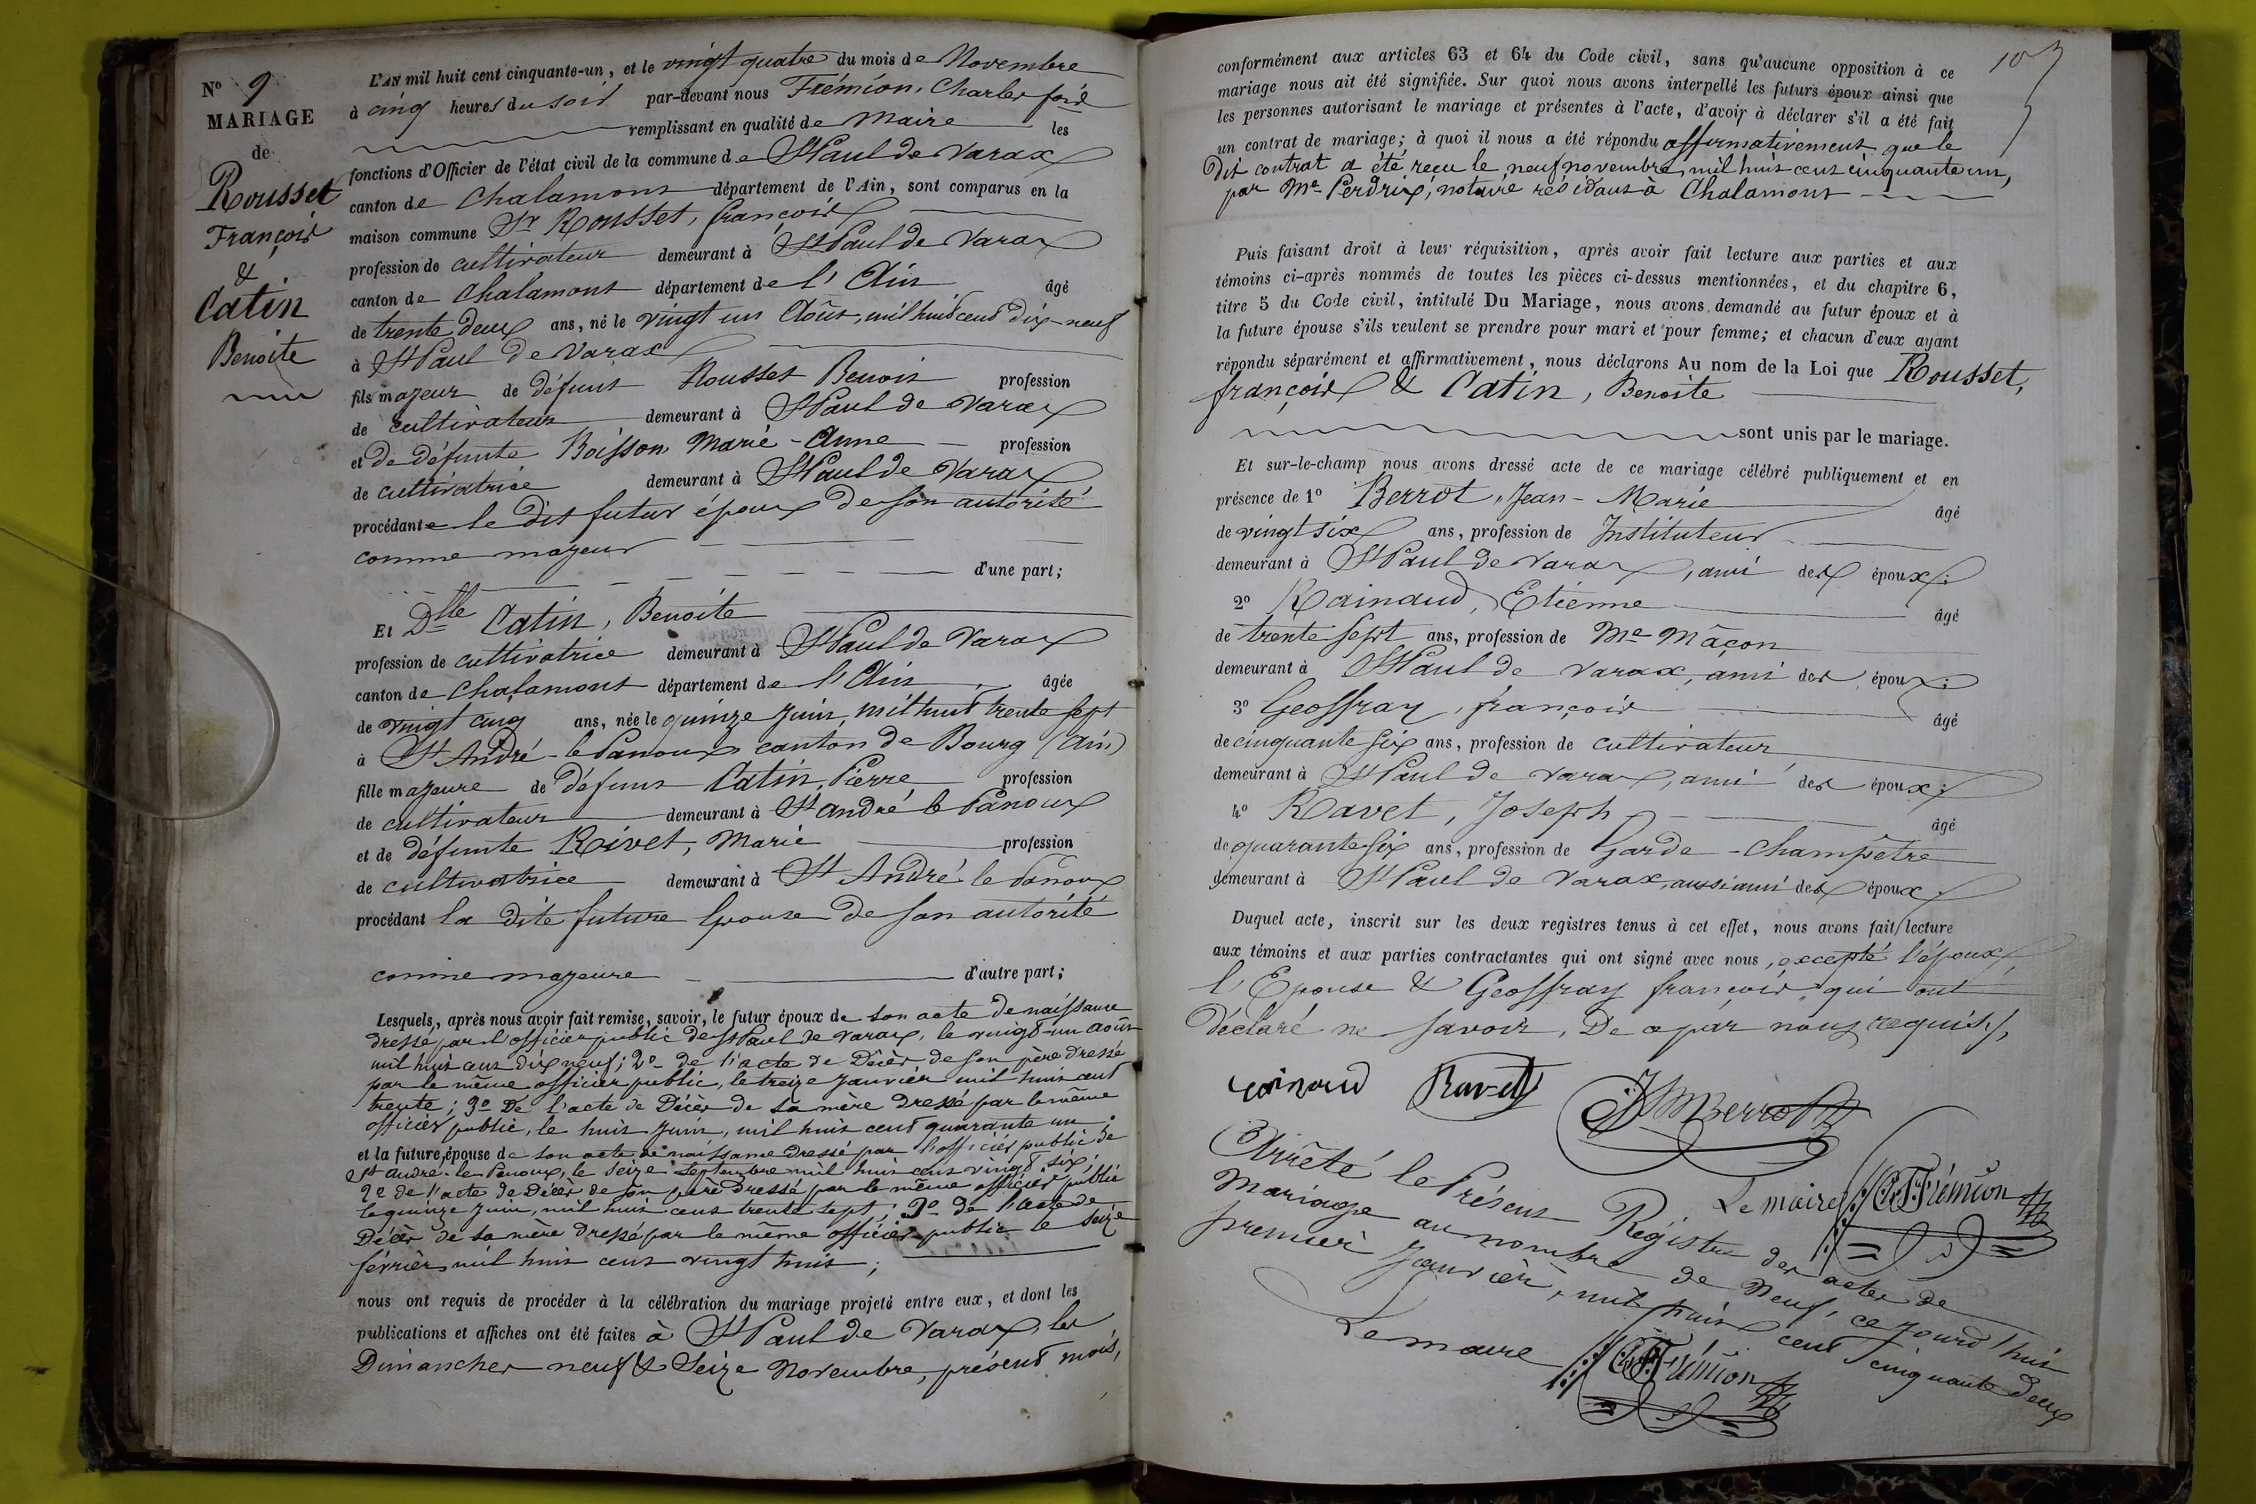 N° 9
MARIAGE
de
Rousset
François
&
Catin
Benoite
L'AN mil huit cent cinquante-un, et le vingt quatre du mois de Novembre
à cinq heures du soir par-devant nous Frémion, Charles
remplissant en qualité de Maire les
fonctions d'Officier de l'état civil de la commune de St Paul de Varax
canton de Chalamont département de l'Ain, sont comparus en la
maison commune Sr Rousset, françois
profession de cultivateur demeurant à St Paul de Varax
canton de Chalamont département de l'Ain âgé
de trente deux ans, né le vingt un Août, mil huit cent dix-neuf
à St Paul de Varax
fils majeur de défunt Rousset Benoit profession
de cultivateur demeurant à St Paul de Varax
et de défunte Boisson Marie-Anne profession
de cultivatrice demeurant à St Paul de Varax
procédant le dit futur époux de son autorité
comme majeur
d'une part;
Et Dlle Catin, Benoite
profession de cultivatrice demeurant à St Paul de Varax
canton de Chalamont département de l'Ain âgée
de vingt cinq ans, née le quinze Juin, mil huit trente sept
à St André-le Panoux canton de Bourg (Ain)
fille majeure de défunt Catin, Pierre profession
de cultivateur demeurant à St André le Panoux
et de défunte Rivet, Marie profession
de cultivatrice demeurant à St André le Panoux
procédant la dite future Epouse de son autorité
comme majeure d'autre part;
Lesquels, après nous avoir fait remise, savoir, le futur époux de son acte de naissance
dressé par l'officier public de St Paul de Varax, le vingt-un août
mil huit cent dix neuf; 2° de l'acte de Décès de son père dressé
par le même officier public, le treize Janvier mil huit cent
trente; 3° De l'acte de Décès de sa mère dressé par le même
officier public, le huit Juin, mil huit cent quarante un.
et la future épouse de son acte de naissance dressé par l'officier public de
St André-le Panoux, le seize Septembre mil huit cent vingt six;
2° de l'acte de Décès de son père dressé par le même officier public
le quinze Juin, mil huit cent trente sept; 3° de l'acte de
Décès de sa mère dressé par le même officier public le seize
février mil huit cent vingt huit;
nous ont requis de procéder à la célébration du mariage projeté entre eux, et dont les
publications et affiches ont été faites à St Paul de Varax, les
Dimanches neuf & Seize Novembre, présent mois,
103
conformément aux articles 63 et 64 du Code civil, sans qu'aucune opposition à ce
mariage nous ait été signifiée. Sur quoi nous avons interpellé les futurs époux ainsi que
les personnes autorisant le mariage et présentes à l'acte, d'avoir à déclarer s'il a été fait
un contrat de mariage; à quoi il nous a été répondu affirmativement que le
Dit contrat a été reçu le neuf novembre, mil huit cent cinquante un,
par Me Perdrix, notaire résidant à Chalamont
Puis faisant droit à leur réquisition, après avoir fait lecture aux parties et aux
témoins ci-après nommés de toutes les pièces ci-dessus mentionnées, et du chapitre 6,
titre 5 du Code civil, intitulé Du Mariage, nous avons demandé au futur époux et à
la future épouse s'ils veulent se prendre pour mari et pour femme; et chacun d'eux ayant
répondu séparément et affirmativement, nous déclarons Au nom de la Loi que Rousset,
françois & Catin, Benoite
sont unis par le mariage.
Et sur-le-champ nous avons dressé acte de ce mariage célébré publiquement et en
présence de 1° Berrot, Jean-Marie âgé
de vingt six ans, profession de Instituteur
demeurant à St Paul de Varax, ami des époux;
2° Rainaud, Etienne âgé
de trente sept ans, profession de Me Mâçon
demeurant à St Paul de Varax, ami des époux;
3° Geoffray, françois âgé
de cinquante six ans, profession de cultivateur
demeurant à St Paul de Varax, ami des époux;
4° Ravet, Joseph âgé
de quarante six ans, profession de Garde-Champêtre
demeurant à St Paul de Varax, aussi ami des époux
Duquel acte, inscrit sur les deux registres tenus à cet effet, nous avons fait lecture
aux témoins et aux parties contractantes qui ont signé avec nous, excepté l'époux,
l'Epouse & Geoffray françois qui ont
déclaré ne savoir, De ce par nous requis.
Rainaud Ravet JM Berrot
Le maire Ch Frémion
Arrêté le Présent Régistre des actes de
Mariage au nombre de Neuf, ce Jourd'hui
premier Janvier, mil huit cent cinquante deux
Le maire Ch Frémion